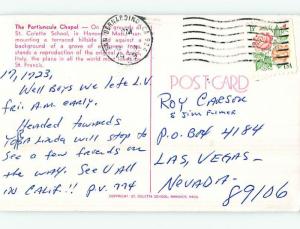 The Portiuncula Chapel — On
St. Coletta School, in Hanov
mounting a terraced hillside against a
background of a grove of
Italy, the place in all the world most
St. Francis.
SAN BERNARDINO, CA
POST CARD
17, 1923,
Well Boys we left L.V.
Fri A.M. early.
Headed towards
Yorba Linda will stop to
See a few friends on
the way. See U all
in Calif!! P.V. 774
ROY CARSON
& Jim Fulmer
P.O. BOX 4184
LAS, VEGAS-
NEVADA-
89106
COPYRIGHT, ST. COLETTA SCHOOL, HANOVER, MASS.